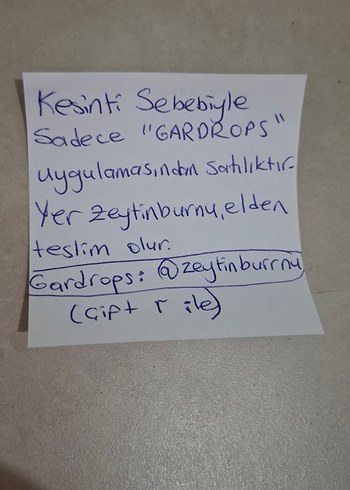 Kesinti Sebebiyle
Sadece "GARDROPS"
uygulamasından satılıktır.
Yer zeytinburnu, elden
teslim olur.
Gardrops: @zeytinburrnu
(Çift r ile)